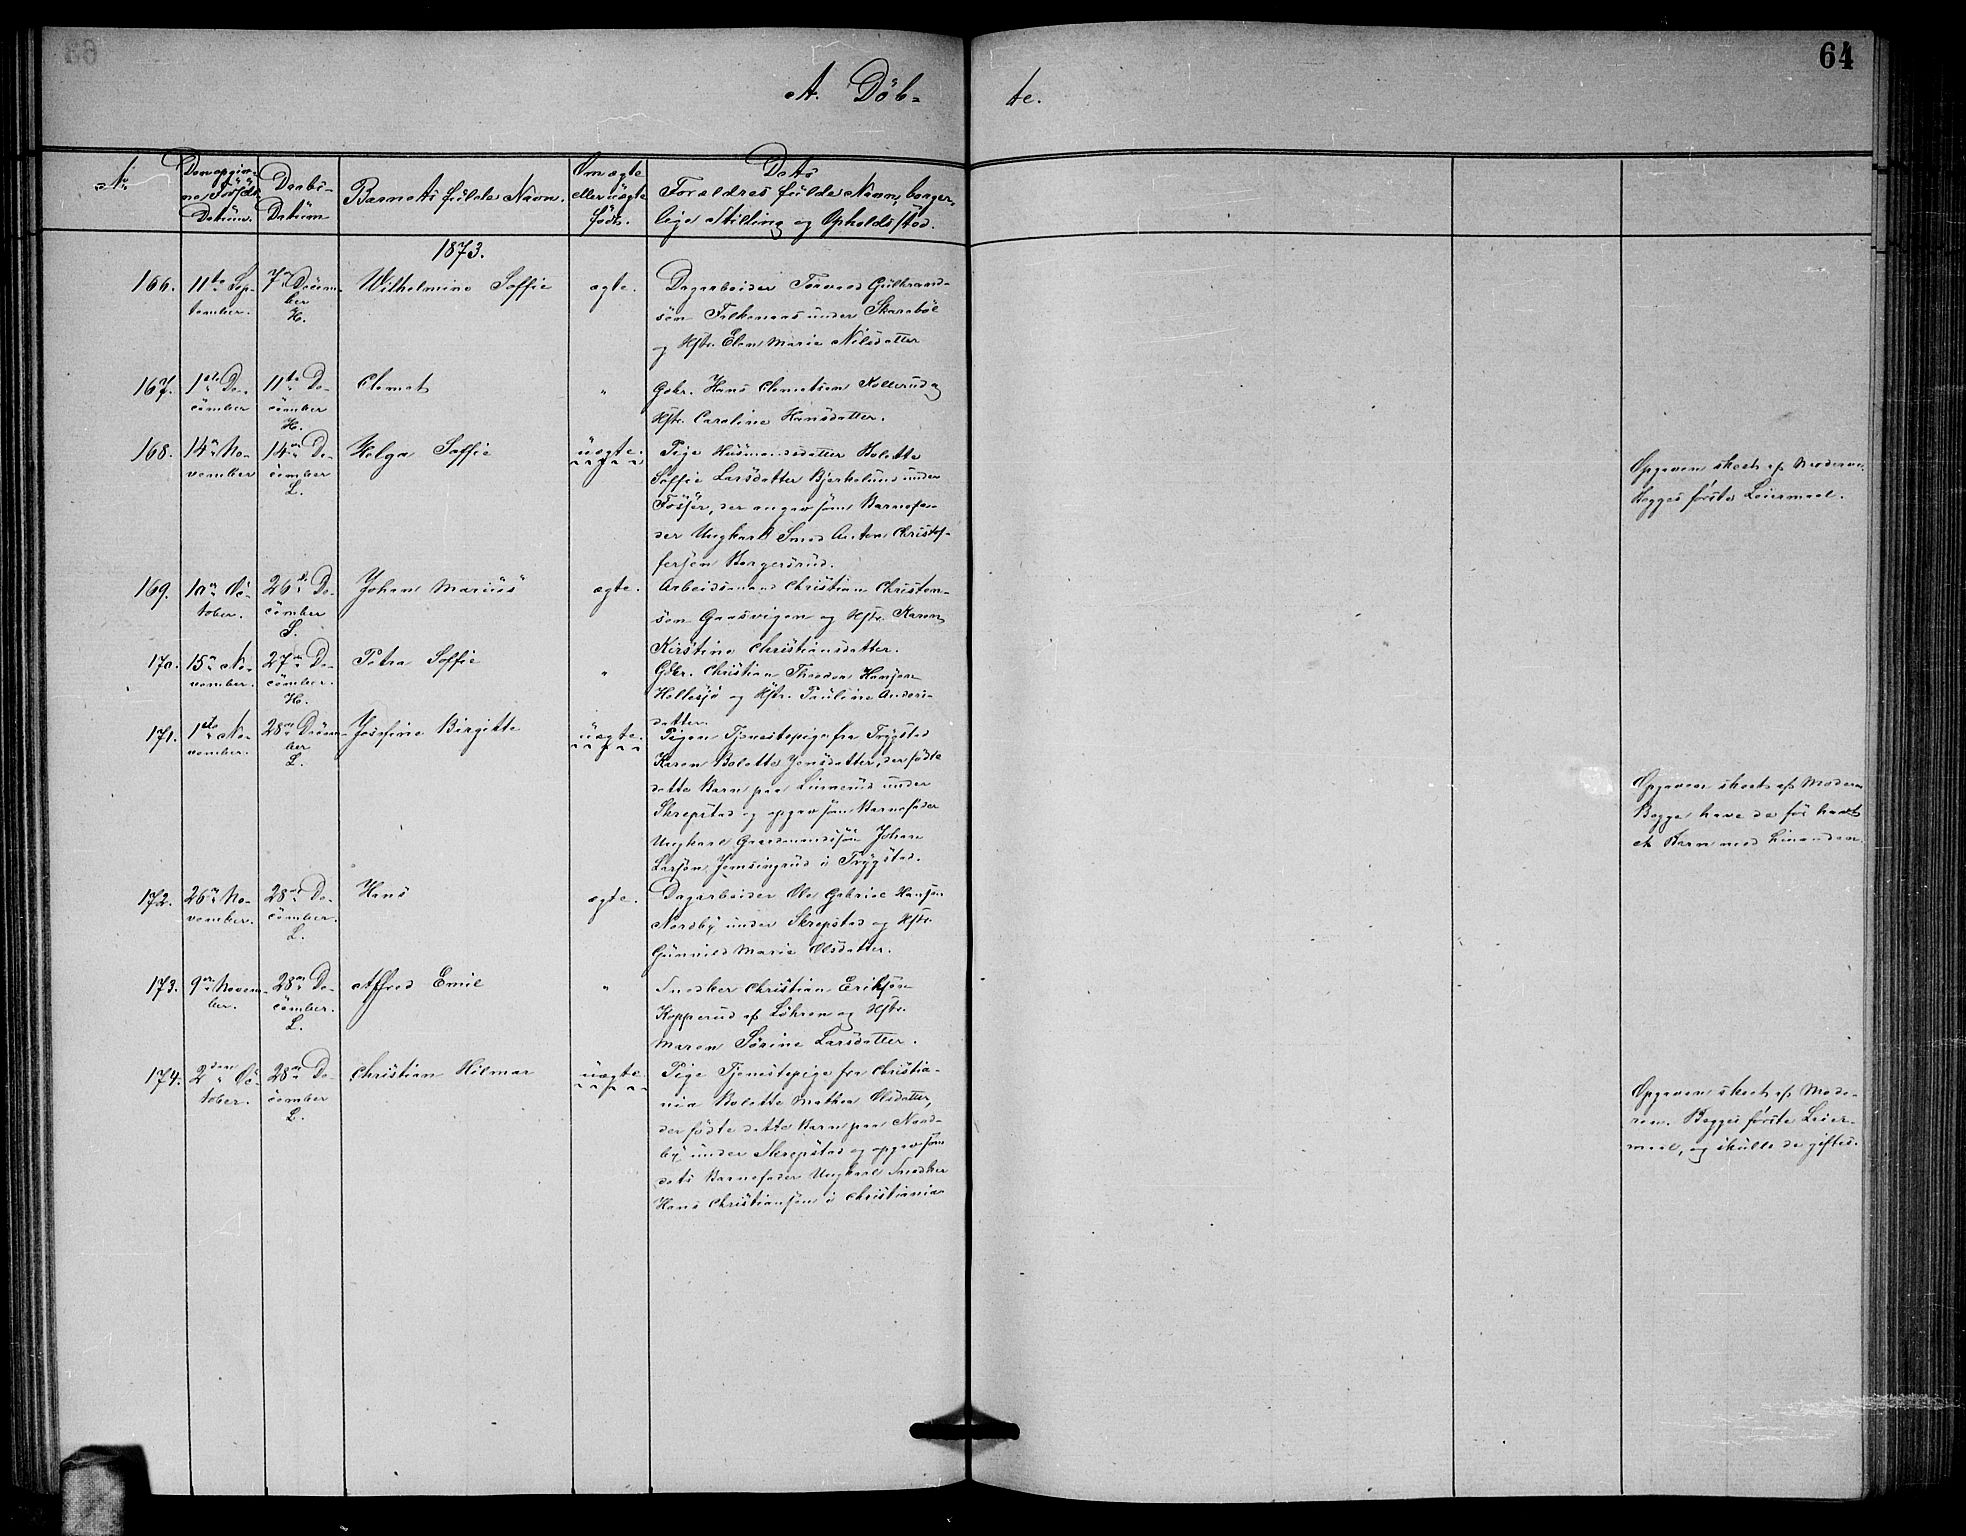 64
A. Döb-
te.
No
Den opgiv-
ne Födsels
Datum.
Daabs-
Datum
Barnets fulde Navn.
Om ægte
eller uægte
födt.
Dets
Forældres fulde Navn, borger-
lige Stilling og Opholdssted.
1873.
166.
11te Sep-
tember.
7n Decem-
ber
H.
Wilhelmine Soffie
ægte.
Dagarbeider Torvald Gulbrand-
sön Falkenaas under Skarabøl
og Hstr. Elen Marie Nilsdatter
167.
1ste De-
cember
11te De-
cember
H.
Clemet
"
Gbr. Hans Clemetsen Kollerud og
Hstr. Caroline Hansdatter.
168.
14n No-
vember
14n De-
cember
L.
Helga Soffie
uægte.
Pige Husmandsdatter Bolette
Soffie Larsdatter Bjerkelund under
Fösser, der angav som Barnefa-
der Ungkarl Smed Anton Christof-
fersen Borgersrud.
Opgaven skeet af Moderen.
Begges første Leiermaal.
169.
10n Oc-
tober.
26d. De-
cember
S.
Johan Marius
ægte.
Arbeidsmand Christian Christen-
sen Gaasvigen og Hstr. Karen
Kirstine Christiansdatter.
170.
15n No-
vember.
27n De-
cember.
H.
Petra Soffie
"
Gbr. Christian Theodor Hansen
Hellesjø og Hstr. Pauline Anders-
datter.
171.
1ste No-
vember.
28n Decem-
ber
L.
Josefine Birgitte
uægte.
Pigen Tjenestepige fra Trygstad
Karen Bolette Jensdatter, der fødte
dette Barn paa Linnerud under
Skrepstad og opgav som Barnefader
Ungkarl Gaardmandssön Johan
Larsen Jemsingrud i Trygstad.
Opgaven skeet af Moderen
Begge have de før havt
et Barn med hinanden.
172.
26n No-
vember.
28n De-
cember.
L.
Hans
ægte.
Dagarbeider Ole Gabriel Hansen
Nordby under Skrepstad og Hstr.
Gunnild Marie Olsdatter.
173.
9n Novem-
ber.
28n De-
cember.
L.
Alfred Emil
"
Snedker Christian Eriksen
Kopperud af Löhren og Hstr.
Maren Sörine Larsdatter.
174.
2den Oc-
tober.
28n De-
cember
L.
Christian Hilmar
uægte.
Pige Tjenestepige fra Christia-
nia Bolette Mathea Olsdatter,
der fødte dette Barn paa Nord-
by under Skrepstad og opgav som
dets Barnefader Ungkarl Snedker
Hans Christiansen i Christiania
Opgaven skeet af Mode-
ren. Begges første Leier-
maal, og skulle de giftes.